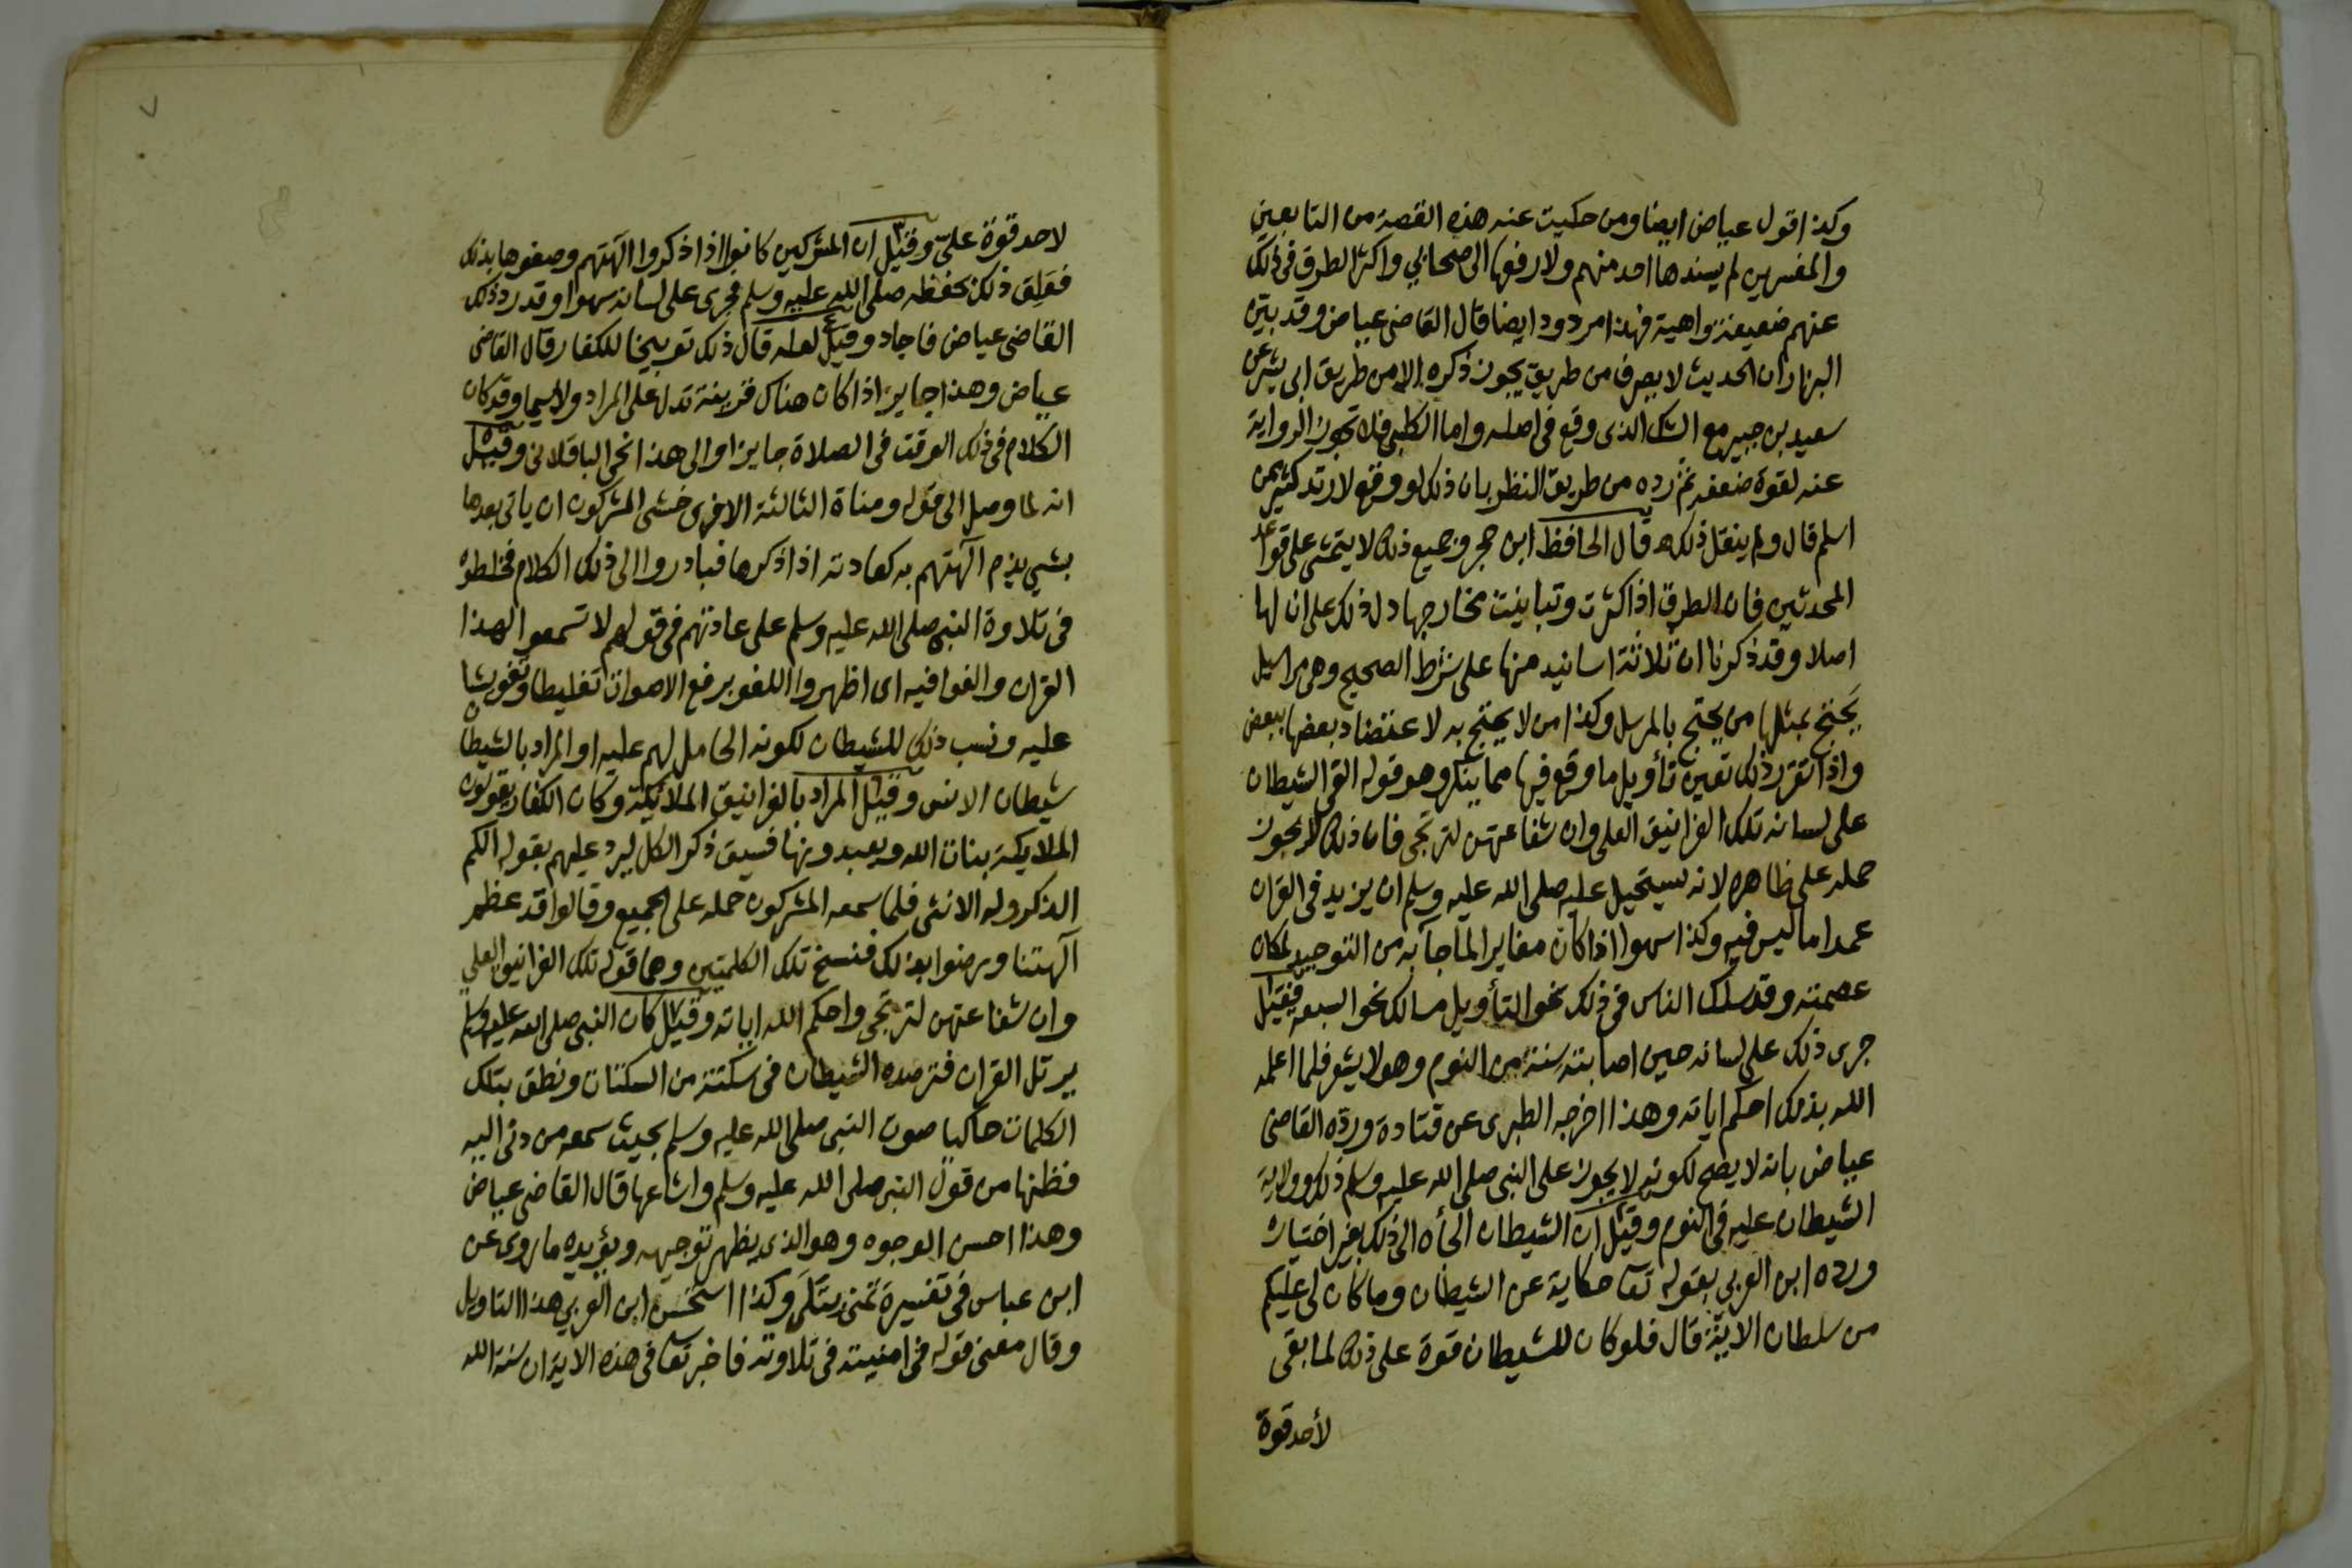 وكذا قول عياض ايضا ومن حكيت عنه هذه القصة من التابعين
والمفسرين لم يسندها احد منهم ولا رفعها الى صحابي واكثر الطرق فى ذلك
عنهم ضعيفة واهية فهذا مردود ايضا قال القاضى عياض وقد بيّن
البزار ان الحديث لا يعرف من طريق يجوز ذكره الا من طريق ابى بشر عن
سعيد بن جبير مع الشك الذى وقع فى اصله واما الكلبى فلا تجوز الرواية
عنه لقوة ضعفه ثم رده من طريق النظر بان ذلك لو وقع لارتد كثير ممن
اسلم قال ولم ينقل ذلك قال الحافظ ابن حجر وجميع ذلك لا يتمشى على قواعد
المحدثين فان الطرق اذا كثرت وتباينت مخارجها دل ذلك على ان لها
اصلا وقد ذكرنا ان ثلاثة اسانيد منها على شرط الصحيح وهى مراسيل
يحتج بمثلها من يحتج بالمرسل وكذا من لا يحتج به لاعتضاد بعضها ببعض
واذا تقرر ذلك تعين تأويل ما وقع فيها مما ينكر وهو قوله القى الشيطان
على لسانه تلك الغرانيق العلى وان شفاعتهن لترتجى فان ذلك لا يجوز
حمله على ظاهره لانه يستحيل عليه صلى الله عليه وسلم ان يزيد فى القران
عمدا ما ليس فيه وكذا سهوا اذا كان مغايرا لما جآ به من التوحيد لمكان
عصمته وقد سلك الناس فى ذلك نحو التأويل مسالك نحو السبعه فقيل ١
جرى ذلك على لسانه حين اصابته سنة من النوم وهو لا يشعر فلما اعلمه
الله بذلك احكم اياته وهذا اخرجه الطبرى عن قتادة وردّه القاضى
عياض بانه لا يصح لكونه لا يجوز على النبى صلى الله عليه وسلم ذلك وولاية
الشيطان عليه فى النوم وقيل ٢ ان الشيطان الجأه الى ذلك بغير اختياره
ورده ابن العربى بقوله تعا حكاية عن الشيطان وما كان لى عليكم
من سلطان الاية قال فلو كان للشيطان قوة على ذلك لما بقى
لأحد قوة
٧
لاحد قوة على وقيل ٣ ان المشركين كانوا اذا ذكروا الهتهم وصفوها بذلك
فعَلِقَ ذلك بحفظه صلى الله عليه وسلم فجرى على لسانه سهوا وقد رد ذلك
القاضى عياض فاجاد وقيل ٤ لعله قال ذلك توبيخا للكفار قال القاضى
عياض وهذا جايز اذا كان هناك قرينة تدل على المراد ولا سيما وقد كان
الكلام فى ذلك الوقت فى الصلاة جايزا والى هذا نحى الباقلانى وقيل ٥
انه لما وصل الى قوله ومناة الثالثة الاخرى خشى المشركون ان ياتى بعدها
بشي يذم آلهتهم به كعادته اذا ذكرها فبادروا الى ذلك الكلام فخلطوه
فى تلاوة النبى صلى الله عليه وسلم على عادتهم فى قولهم لا تسمعوا لهذا
القران والغوا فيه اى اظهروا اللغو برفع الاصوات تغليطا وتشويشا
عليه ونسب ذلك للشيطان لكونه الحامل لهم عليه او المراد بالشيطان
شيطان الانس وقيل ٦ المراد بالغرانيق الملائكة وكان الكفار يقولون
الملايكة بنات الله ويعبدونها فسيق ذكر الكل ليرد عليهم بقوله الكم
الذكر وله الانثى فلما سمعه المشركون حمله على الجميع وقالوا قد عظم
آلهتنا ورضوا بذلك فنسخ تلك الكلمتين وهما قوله تلك الغرانيق العلى
وان شفاعتهن لترتجى واحكم الله اياته وقيل ٧ كان النبى صلى الله عليه وسلم
يرتل القران فترصده الشيطان فى سكتة من السكتات ونطق بتلك
الكلمات حاكيا صوت النبى صلى الله عليه وسلم بحيث سمعه من دنى اليه
فظنها من قول النبى صلى الله عليه وسلم واشاعها قال القاضى عياض
وهذا احسن الوجوه وهو الذى يظهر توجيهه ويؤيده ما روى عن
ابن عباس فى تفسيره تمنى بتلى وكذا استحسن ابن العربى هذا التاويل
وقال معنى قوله فى امنيته فى تلاوته فاخبر تعا فى هذه الاية ان سنة الله